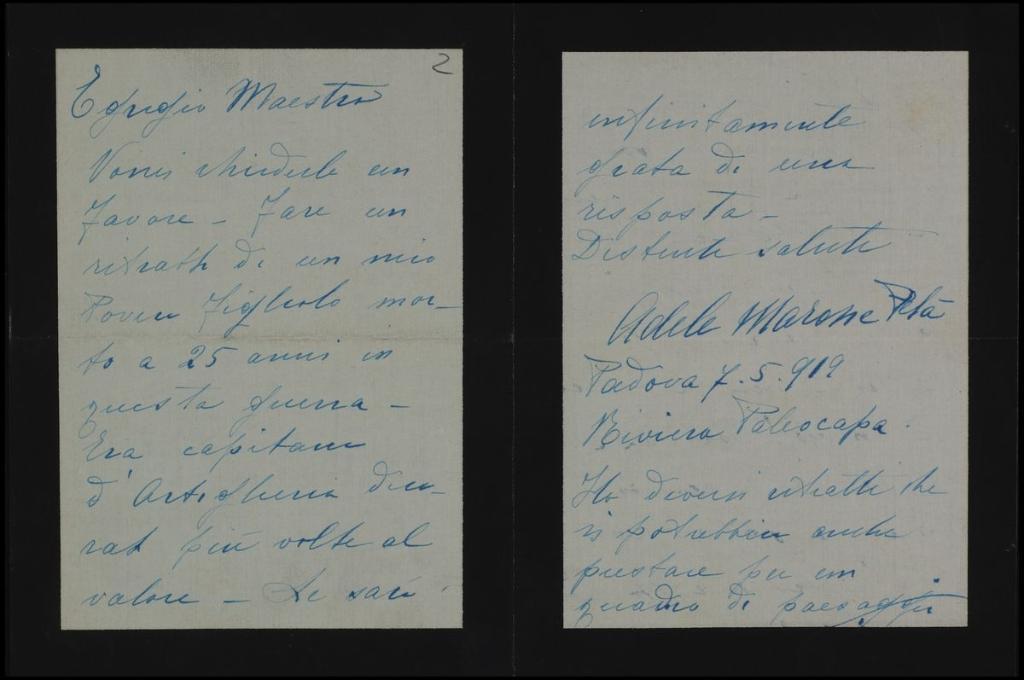 2
Egregio Maestro
Vorrei chiederle un
favore - fare un
ritratto di un mio
Povero figliolo mor-
to a 25 anni in
questa guerra -
Era capitano
d'Artiglieria deco-
rato più volte al
valore - Le sarò
infinitamente
grata di una
risposta -
Distinti saluti
Adele Marose
Padova 7.5.919
Riviera Paleocapa.
Ho diversi ritratti che
si potrebbero anche
prestare per un
quadro di paesaggio